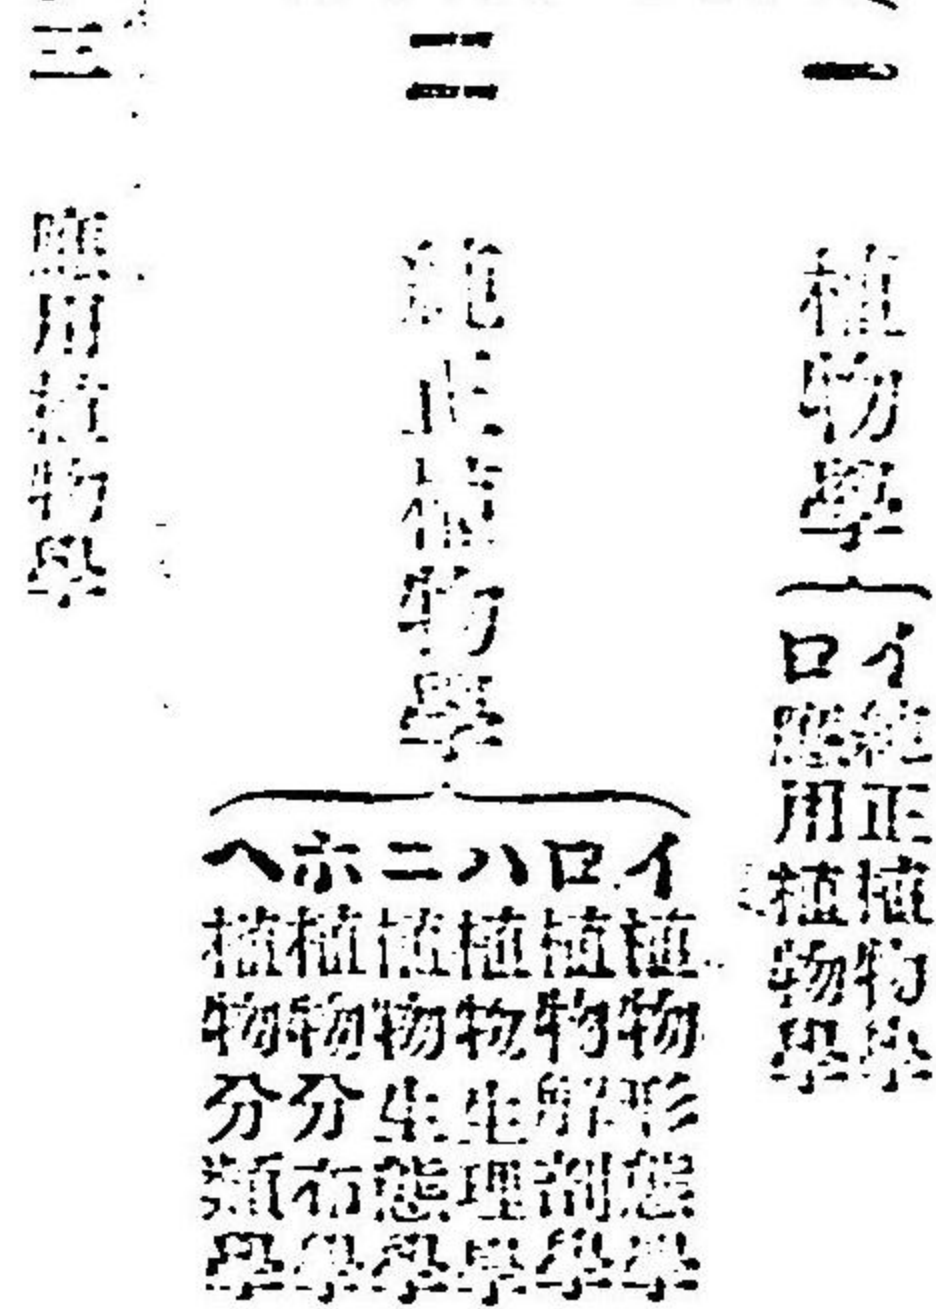 一 植物學
イ 純正植物學
ロ 應用植物學
二 純正植物學
イ 植物形態學
ロ 植物解剖學
ハ 植物生理學
ニ 植物生態學
ホ 植物分布學
ヘ 植物分類學
三 應用植物學